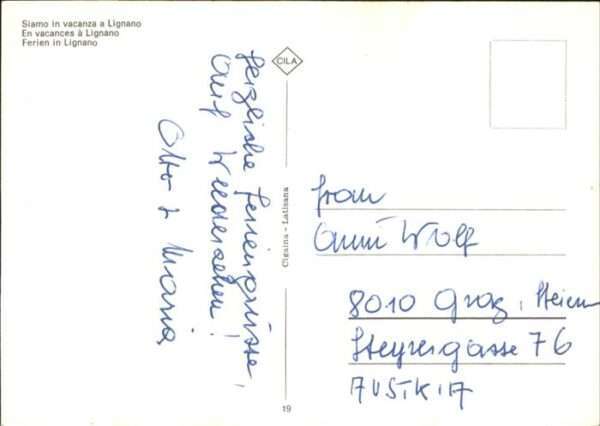 Siamo in vacanza a Lignano
En vacances à Lignano
Ferien in Lignano
CILA
Herzliche Feriengrüsse,
Auf Wiedersehen!
Otto & Maria
Cigaina - Latisana
19
Frau
Anni Wolf
8010 Graz, Steierm
Steyrergasse 76
AUSTRIA